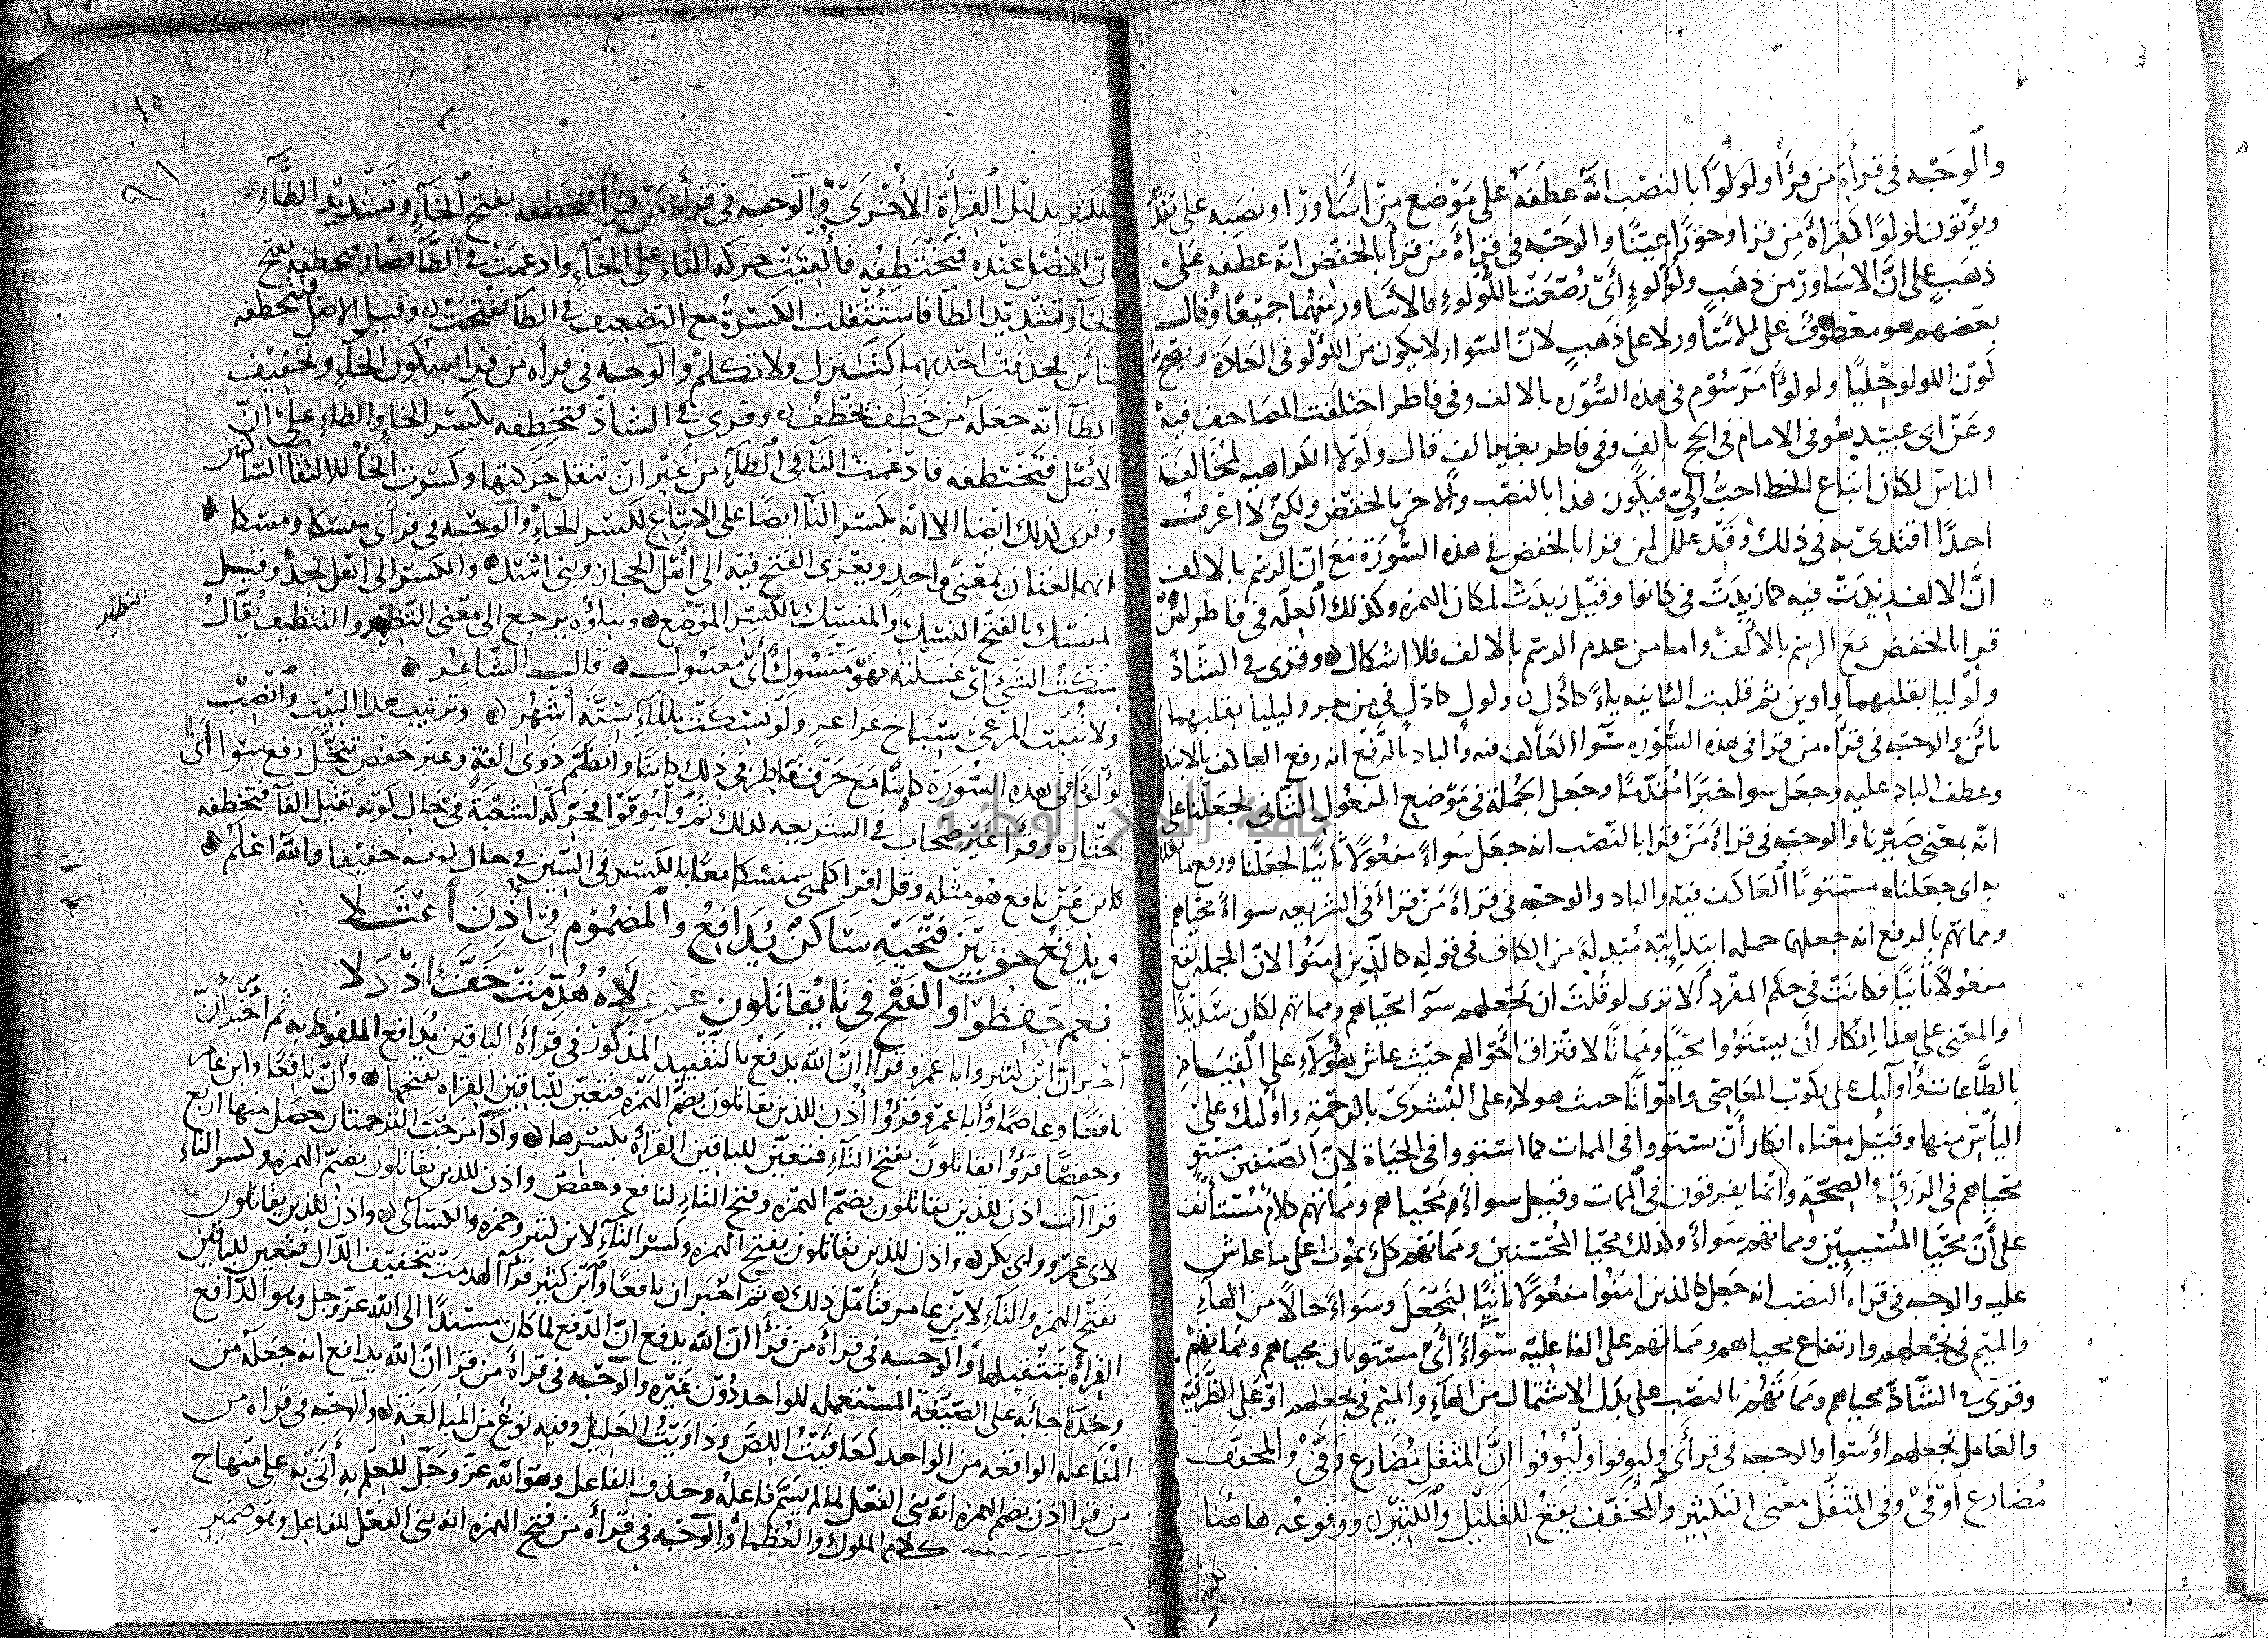 والوجه في قرأة من قرأ ولولوًا بالنصب انه عطفه على موضع من أساور او نصبه على تقدير
ويؤتون لولوًا كقراة من قرا وحورًا عينًا والوجه في قراة من قرأ بالخفض انه عطفه على
ذهب على انّ الاساور من ذهب ولؤلوءٍ أيْ رُصّعت باللؤلوء فالاساور منهما جميعًا وقال
بعضهم هو معطوف على الاساور لا على ذهب لانّ السوار لا يكون من اللؤلؤ في العادة ويصح
لون اللولو حليًا ولولوًا مرسوم في هذه السورة بالالف وفي فاطر اختلفت المصاحف فيه
وعن ابى عبيد هو في الامام في الحج بألف وفي فاطر بغير الف قال ولولا الكراهيه لمخالفة
الناس لكان اتباع الخط احبّ اليّ فيكون هذا بالنصب والاخر بالخفض ولكني لا اعرف
احدًا اقتدى به في ذلك وقد علل لمن قرا بالخفض في هذه السورة مع ان الرسم بالالف
انّ الالف زيدت فيه كما زيدت في كانوا وقيل زيدت لمكان الهمزه وكذلك العلّه في فاطر لمن
قرا بالخفض مع الرسم بالألف واما من عدم الرسم بالالف فلا اشكال وقرى في الشاذ
ولوليا بقلبهما واوين ثم قلبت الثانيه ياءً كأدلٍ ولول كادلٍ في من جر وليليا بقلبهما
يائين والوجه في قراه من قرا في هذه السوره سوا العاكف فيه والباد بالرفع انه رفع العاكف بالابتدا
وعطف الباد عليه وجعل سوا خبرًا مُقدّمًا وجعل الجملة في موضع المفعول الثاني لجعلنا على
انّه بمعنى صيّرنا والوجه في قراة من قرا بالنصب انه جعل سواءً مفعولًا ثانيًا لجعلنا ورفع ما بعده
به اى جعلناه مستويًا العاكف فيه والباد والوجه في قراة من قرأ في الشريعه سواءً محياهم
ومماتهم بالرفع انه جعلها جمله ابتدايّيه مبدلة من الكاف في قوله كالذين امنوا لانّ الجمله تقع
مفعولًا ثانيًا فكانت في حكم المفرد ألا ترى لو قلت ان نجعلهم سوآ محياهم ومماتهم لكان سديدًا
والمعنى على هذا إنكار أن يستووا محيًا ومماتًا لافتراق احوالهم حيث عاش هؤلآء على القيام
بالطاعات وأوليك على ركوب المعاصي وامواتًا حيث هولاءِ على البشرى بالرحمة واوليك على
اليأس منها وقيل معناه انكار أن يستووا في الممات كما استووا في الحياة لانّ الصنفين مستو
محياهم في الرزق والصحّة وانما يفترقون في الممات وقيل سواءً محياهم ومماتهم كلام مستأنف
على أنّ محيا المسيئين ومماتهم سواءً وكذلك محيا المحسنين ومماتهم كلٌ يموت على ما عاش
عليه والوجه في قراه النصب انه جعل كالذين امنوا مفعولًا ثانيًا لنجعل وسواءً حالًا من الهاءِ
والميم في نجعلهم وارتفاع محياهم ومماتهم على الفاعليه سواءً أىْ مستويان محياهم ومماتهم
وقرى في الشاذ محياهم ومماتَهُم بالنصب على بدل الاشتمال من الهاءِ والميم في نجعلهم او على الظرفية
والعامل نجعلهم او سوا والوجه في قرأتى وليوفوا وليُوفُوا انّ المثقل مُضارع وفّى والمخفف
مُضارع أوفى وفي المثقل معنى التكثير والمخفف يقع للقليل والكثير ووقوعه هاهنا
للكثير بدليل القرأة الأخرى والوجه في قرأة من قرأ فتخطفه بفتح الخآءِ وتشديد الطآءِ
انّ الاصل عنده فتختطفه فألقيت حركه التاءِ على الخآءِ وادغمت في الطآ فصار فتخطفه بفتح
الخآ وتشديد الطآ فاستثقلت الكسرة مع التضعيف في الطآ ففتحت وقيل الاصل فتتخطفه
بتائين فحذفت احديهما كتنزل ولا تكلم والوجه في قرأه من قرا بسكون الخآءِ وتخفيف
الطآ انّه جعله من خطف يخطف وقرى في الشاذ فتخطفه بكسر الخاءِ والطاءِ على انّ
الاصل فتختطفه فادغمت التآ في الطآءِ من غير ان تنقل حركتها وكسرت الخآ لالتقا الساكنين
وقرى كذلك ايضا الا انه بكسر التآ ايضًا على الاتباع لكسر الخاءِ والوجه في قرأتى منسَكا ومنسِكا
انهما لغتان بمعنى واحدٍ ويعزى الفتح فيه الى أهل الحجاز وبنى اسد والكسر الى اهل نجد وقيل
المنسك بالفتح النسك والمنسك بالكسر الموضع وبناؤه يرجع الى معنى التطهير والتنظيف يُقالُ
التطهير
نسكت الشيَ اى غسلته فهو منسوك أيْ مغسول قال الشاعر
ولا تُنبت المرعى سباخ عراعرٍ ولو نسكت بالماءِ ستّة أشهر وترتيب هذا البيت وانصب
لؤلؤًا في هذه السورة كاينًا مع حرف فاطر في ذلك كاينًا وانظم ذوى الفة وغير حفص تنحّل رفع سوا أيْ
اختاره وقرأ غير صحاب في الشريعه كذلك ثمّ وليوفوا محركه لشعبة في حال كونه ثقيل الفآ فتخطفه
كاين عن نافع هو مثله وقل اقرا كلمتى منسكا معًا بالكسر في السين في حال كونه خفيفا والله اعلم
ويدفع حق بين فتحيه ساكن يُدافعُ والمضموم في أذن أعتلا
نعم حفظوا والفتح في تا يقاتلون عمّ علاه هُدّمت خفّ اذ دلا
أخبر ان ابن كثير وابا عمرو قرا ان الله يدفع بالتقييد المذكور في قراة الباقين يُدافع الملفوظ به ثم أخبر أنّ
نافعًا وعاصمًا وأبا عمرو قرؤا أُذن للذين يقاتلون بضم الهمزه فتعيّن للباقين القراه بفتحها وأنّ نافعًا وابن عامر
وحفصًا قرؤا يقاتَلون بفتح التآءِ فتعيّن للباقين القرأه بكسرها واذا مزجت الترجمتان حصل منها اربع
قراآت اذن للذين يقاتلون بضمّ الهمزه وفتح التاءِ لنافع وحفص واذن للذين يقاتلون بضمّ الهمزه وكسر التاءِ
لابى عمرو وابى بكر واذن للذين يقاتلون بفتح الهمزه وكسر التآءِ لابن كثير وحمزه والكسائي واذن للذين يقاتلون
بفتح الهمزه والتآءِ لابن عامر فتأمّل ذلك ثمّ اخبر ان نافعًا وابن كثير قرآ لهدمت بتخفيف الدّال فتعين للباقين
القرأة بتثقيلها والوجه في قرأة من قرأ انّ الله يدفع انّ الدفع لما كان مستندًا الى الله عزّ وجل وهو الدّافع
وحده جآ به على الصيغة المستعمله للواحد دُون غيره والوجه في قراة من قرا انّ الله يدافع انه جعله من
المفاعله الواقعه من الواحد كعاقبت اللصّ وداويت العليل وفيه نوع من المبالغة والوجه في قراه من
من قرا اذن بضم الهمزه انّه بنى الفعل لما لم يسمّ فاعله وحذف الفاعل وهو الله عزّ وجلّ للعلم به أتى به على منهاج
كلام الملوك والعظما والوجه في قرأة من فتح الهمزه انه بنى الفعل للفاعل وهو ضمير